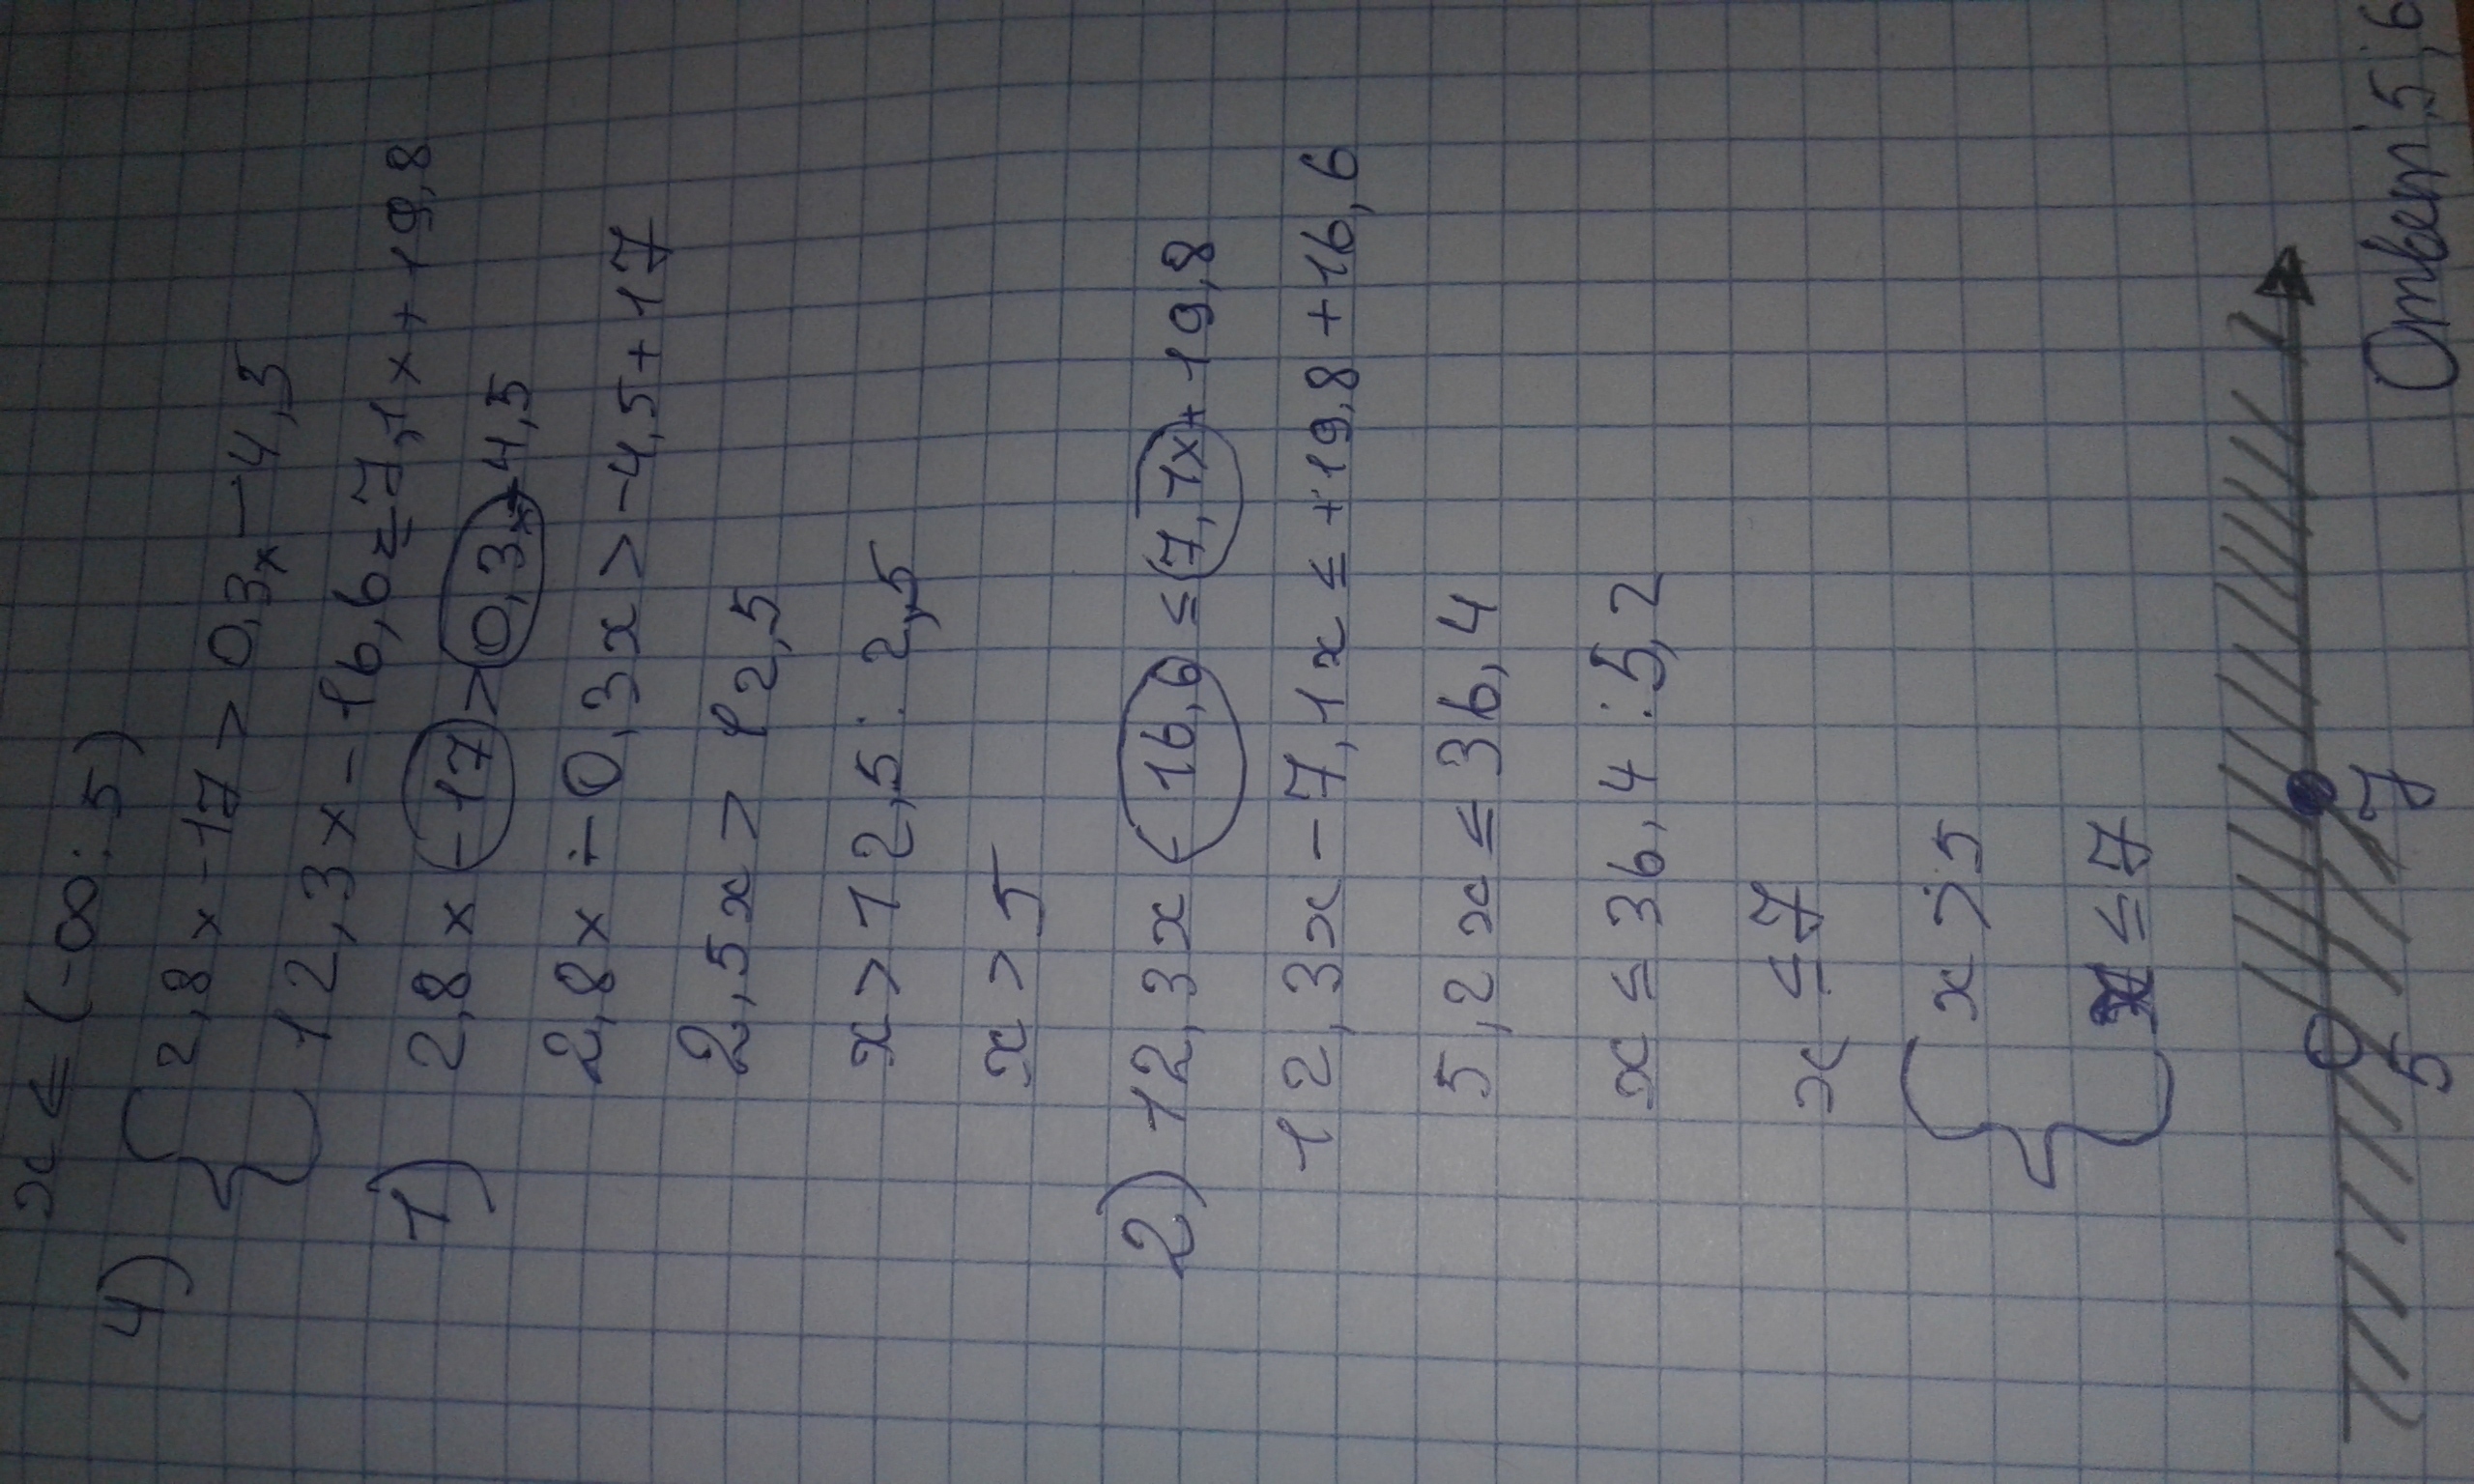 x ∈ (-∞; 5)
4) { 2,8x-17 > 0,3x-4,5
12,3x-16,6≤7,1x+19,8
1) 2,8x-17>0,3x-4,5
2,8x-0,3x>-4,5+17
2,5x > 12,5
x>12,5:2,5
x>5
2) 12,3x-16,6≤7,1x+19,8
12,3x-7,1x≤+19,8+16,6
5,2x≤36,4
x≤36,4:5,2
x≤7
{ x>5
x≤7
5 7
Ответ:5;6